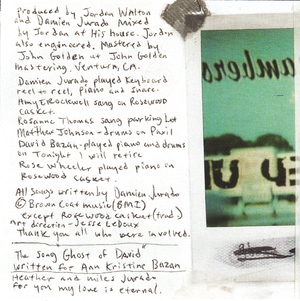 produced by Jordan Walton
and Damien Jurado Mixed
by Jordan at His house. Jordan
also engineered. Mastered by
John Golden at John Golden
mastering, Ventura, CA.
Damien Jurado played Keyboard
reel to reel, piano and snare.
Amy Rockwell sang on Rosewood
Casket.
Rosanne Thomas sang parking lot
Matthew Johnson - drums on Paxil
David Bazan - played piano and drums
on Tonight I will retire
Rose Wheeler played piano on
Rosewood Casket.
All songs written by Damien Jurado
© Brown Coat music (BMI)
except Rosewood Casket (trad)
Art direction - Jesse LeDoux
Thank you all who were involved.
The song Ghost of David"
written for Ann Kristine Bazan
Heather and miles Jurado
For you my love is eternal.